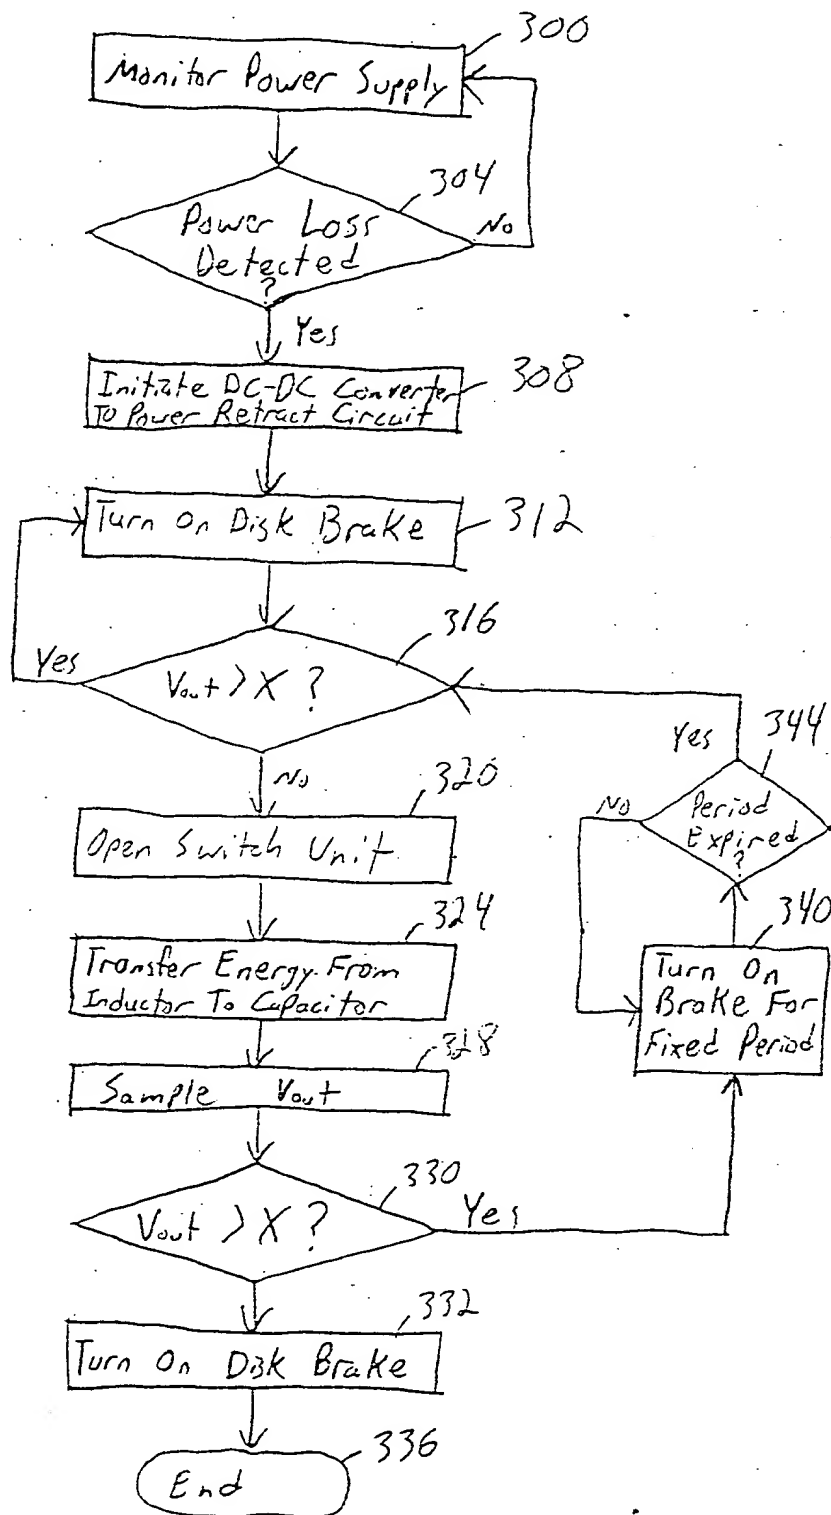 300
Monitor Power Supply
304
Power Loss
Detected
?
No
Yes
Initiate DC-DC Converter
To Power Retract Circuit
308
Turn On Disk Brake
312
316
Yes
Vout > X ?
No
320
Open Switch Unit
324
Transfer Energy From
Inductor To Capacitor
328
Sample Vout
330
Vout > X ?
Yes
332
Turn On Disk Brake
336
End
344
Yes
No
Period
Expired
?
340
Turn On
Brake For
Fixed Period